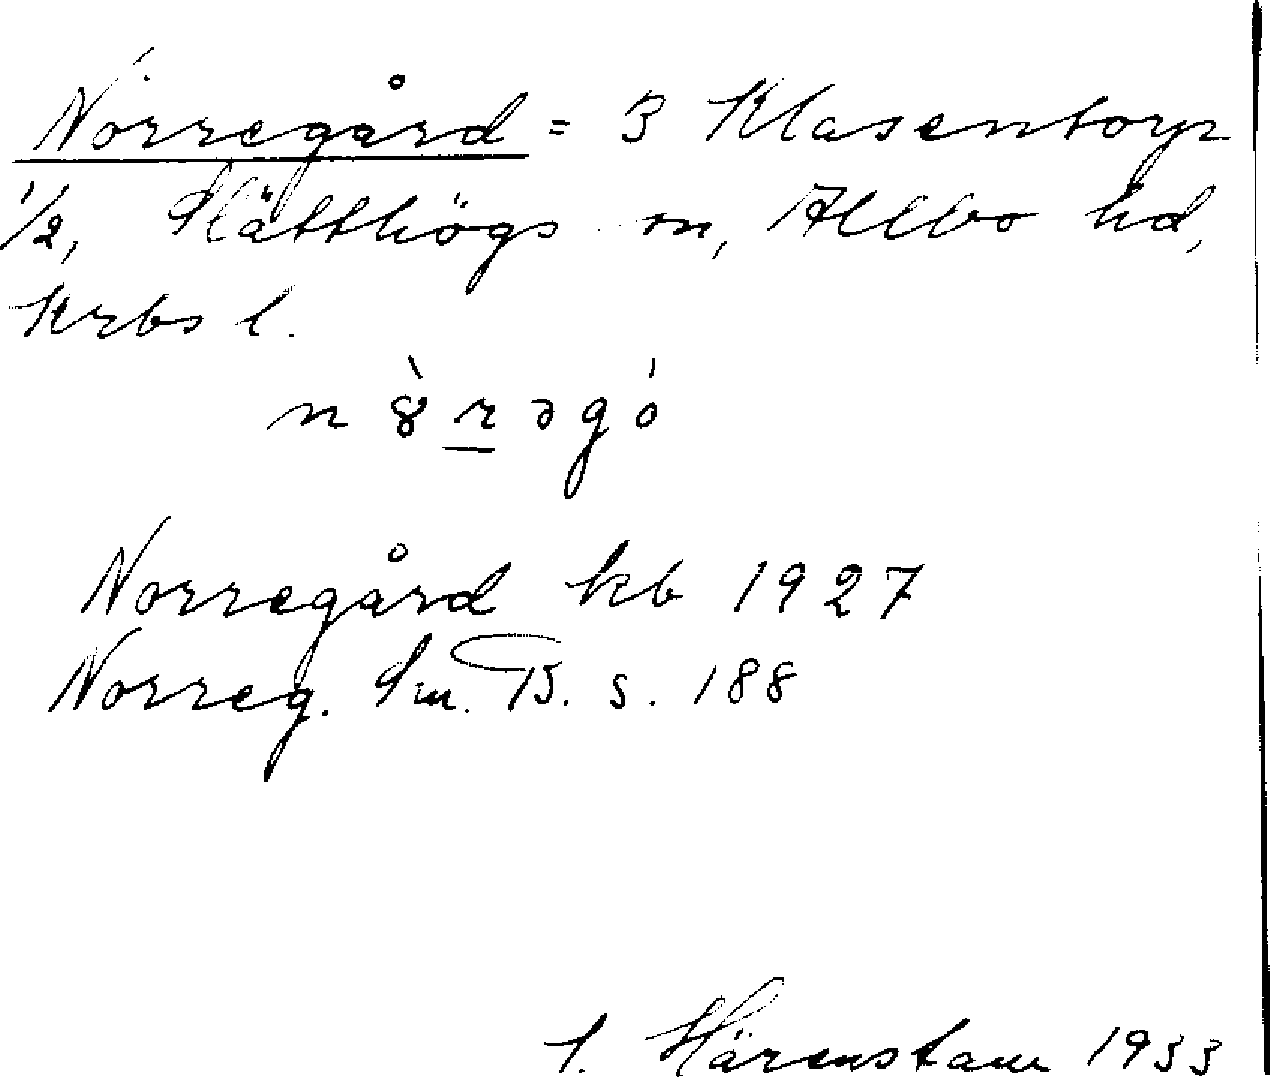 Norregård = 3 Klasentorp
1/2, Slätthögs sn, Allbo hd,
Krbs l.
n ȣ̀ r ə g ó
Norregård kb 1927
Norreg. Sm. B. s. 188
S. Härenstam 1933